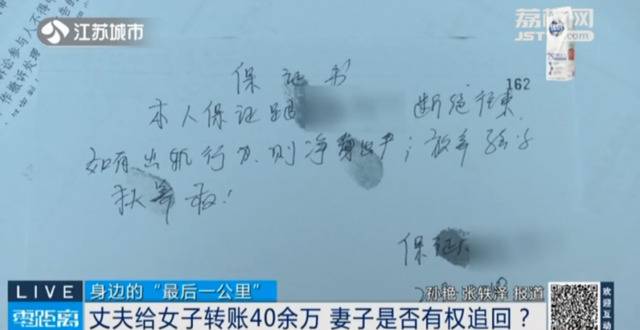 江苏城市
荔枝网
保证书
162
本人保证跟 断绝往来,
如有出轨行为,则净身出户;放弃孩子
抚养权!
保证人
LIVE 身边的“最后一公里” 孙艳 张轶泽 报道
零距离 丈夫给女子转账40余万 妻子是否有权追回?
欢迎互动